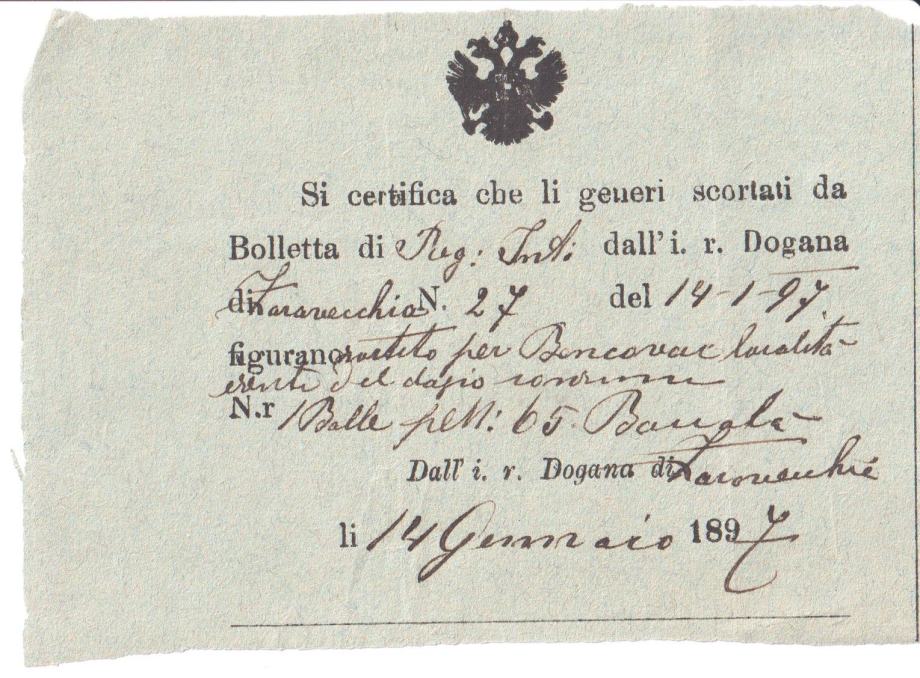 Si certifica che li generi scortati da
Bolletta di Reg: Inti dall'i. r. Dogana
di Zaravecchia N. 27 del 14-1-97
figurano sortito per Bencovac localita
esenti del dazio consumo
N.r 1 Balle 65
Dall' i. r. Dogana di Zaravecchia
li 14 Gennaio 1897